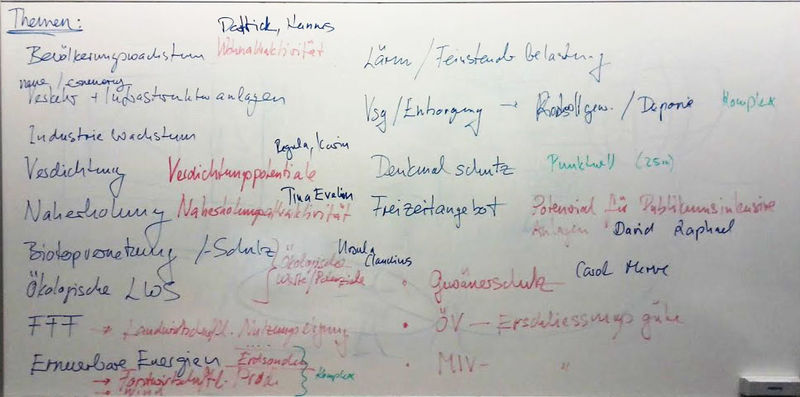 Themen:
Patrick, Hannes
Bevölkerungswachstum Wohnattraktivität
neue / erneuerg
Verkehr + Infrastrukturanlagen
Industriewachstum
Regula, Karin
Verdichtung Verdichtungspotentiale
Tina Evelin
Naherholung Naherholungsattraktivität
Biotopvernetzung /-Schutz
Ursula
Claudius
Ökologische LWS
Ökologische
Werte/Potenziale
FFF → Landwirtschaftl. Nutzungseignung
Erneuerbare Energien Erdsonden
→ Forstwirtschaftl. Prod.
→ Wind
Komplex
Lärm / Feinstaub belastung
Vsg / Entsorgung → Rohstoffgew. / Deponie Komplex
Denkmalschutz Punktuell (25m)
Freizeitangebot Potenzial für Publikumsintensive
Anlagen David Raphael
• Gewässerschutz
• ÖV — Erschliessungsgüte
• MIV - "